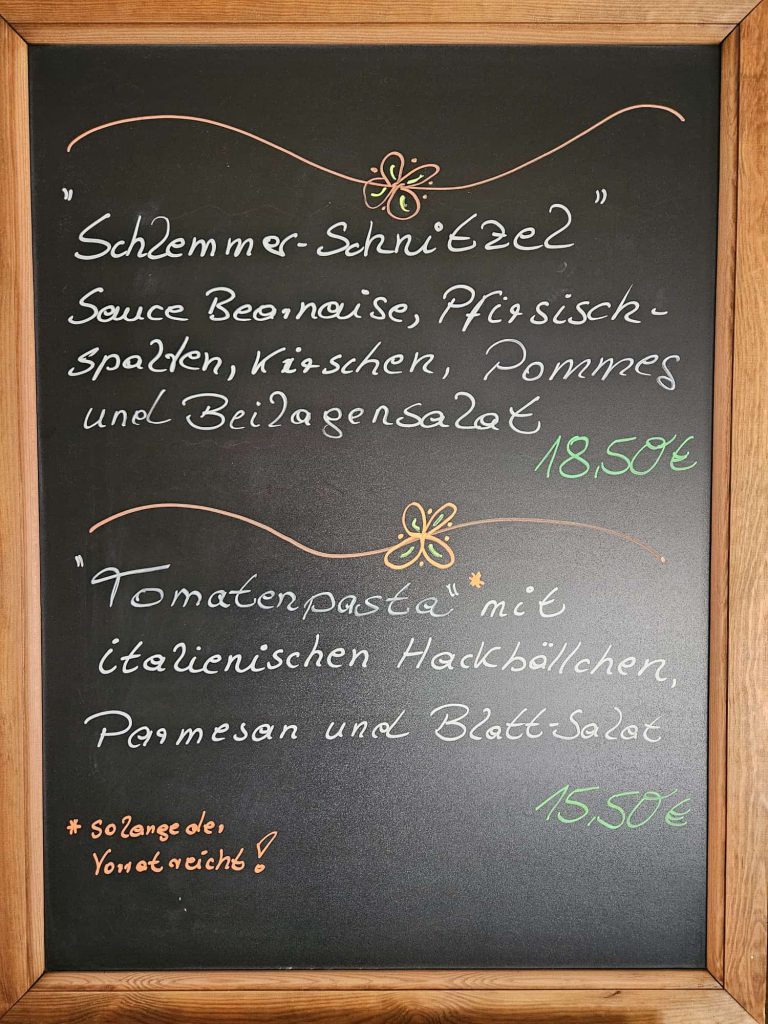 "Schlemmer-Schnitzel"
Sauce Bearnaise, Pfirsisch-
spalten, Kirschen, Pommes
und Beilagensalat
18,50€
"Tomatenpasta"* mit
italienischen Hackbällchen,
Parmesan und Blatt-Salat
15,50€
* solange der
Vorrat reicht!